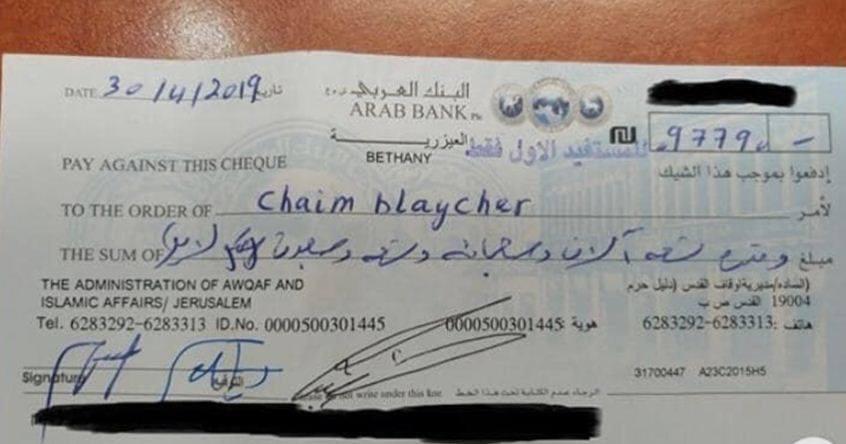 DATE 30/4/2019 تاريخ
البنك العربي ش.م.ع
ARAB BANK Plc
العيزرية
BETHANY
للمستفيد الاول فقط
9779 -
PAY AGAINST THIS CHEQUE
إدفعوا بموجب هذا الشيك
TO THE ORDER OF Chaim blaycher لأمر
THE SUM OF تسعة آلاف وسبعمائة وتسعة وسبعون مبلغ وقدره
THE ADMINISTRATION OF AWQAF AND
ISLAMIC AFFAIRS/ JERUSALEM
السادة/مديرية اوقاف القدس (دليل حرم)
19004 القدس ص ب
Tel. 6283292-6283313 ID.No. 0000500301445
هوية: 0000500301445 هاتف: 6283313-6283292
Signature التوقيع
Please do not write under this line الرجاء عدم الكتابة تحت هذا الخط
31700447 A23C2015H5